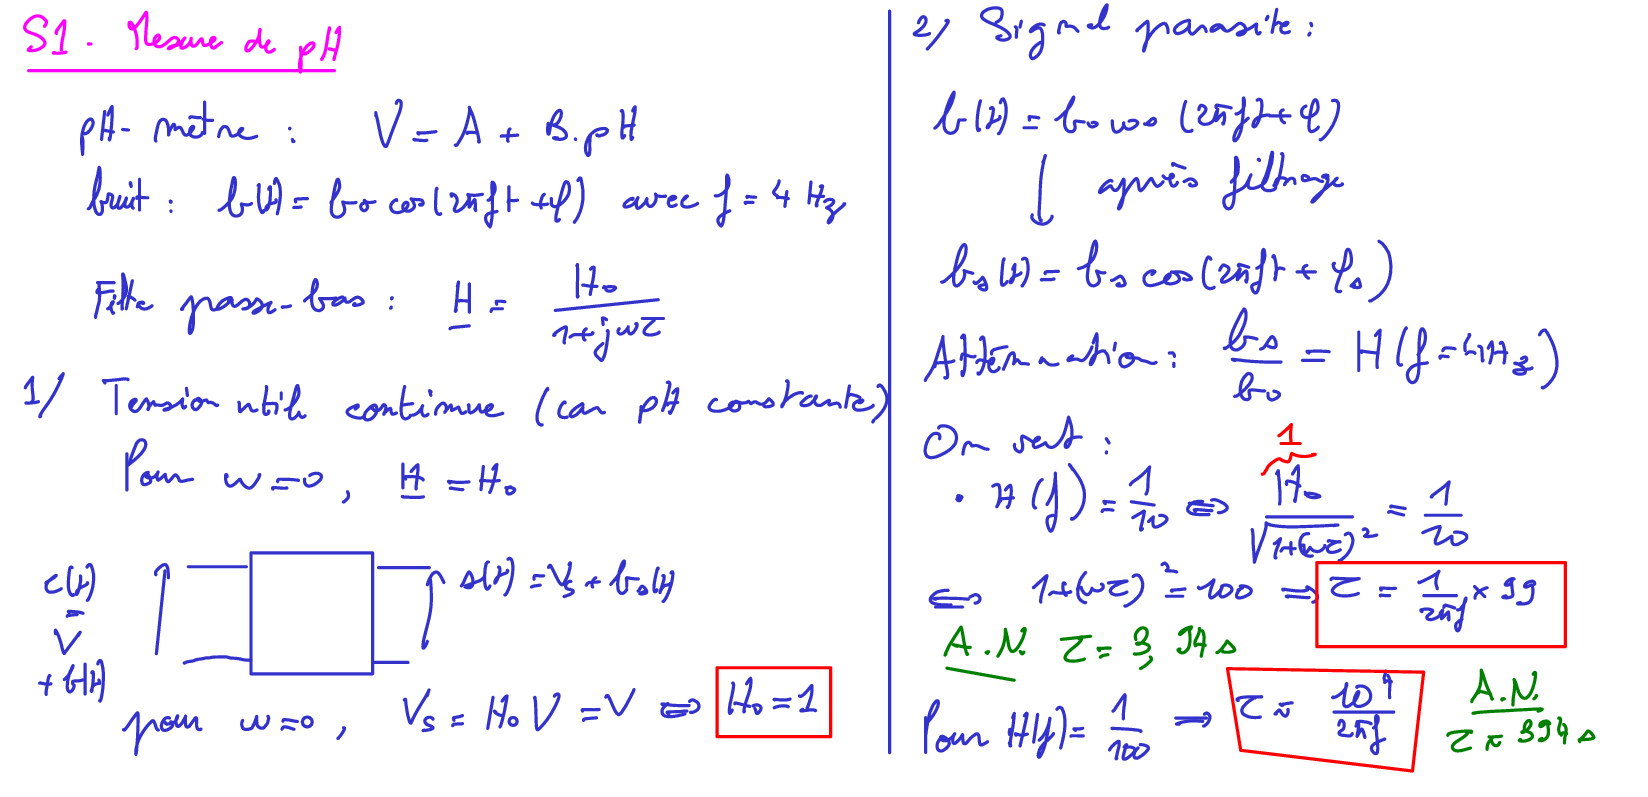 S1. Mesure de pH
pH-mètre : V = A + B.pH
bruit : b(t) = b₀ cos(2πft + φ) avec f = 4 Hz
Filtre passe-bas : H = H₀ / (1+jωτ)
1/ Tension utile continue (car pH constante)
Pour ω = 0, H = H₀
e(t) = V + b(t)
s(t) = Vs + bs(t)
pour ω = 0, Vs = H₀ V = V ⟺ H₀ = 1
2/ Signal parasite :
b(t) = b₀ cos (2πft + φ)
↓ après filtrage
bs(t) = bs cos(2πft + φs)
Atténuation : bs / b₀ = H(f = 4 Hz)
On veut :
1
• H(f) = 1/10 ⟺ H₀ / √(1+(ωτ)²) = 1/10
⟺ 1+(ωτ)² = 100 ⟹ τ = 1/(2πf) × 99
A.N. τ = 3,94 s
Pour H(f) = 1/100 ⟹ τ ≈ 10⁴/(2πf)
A.N.
τ ≈ 394 s